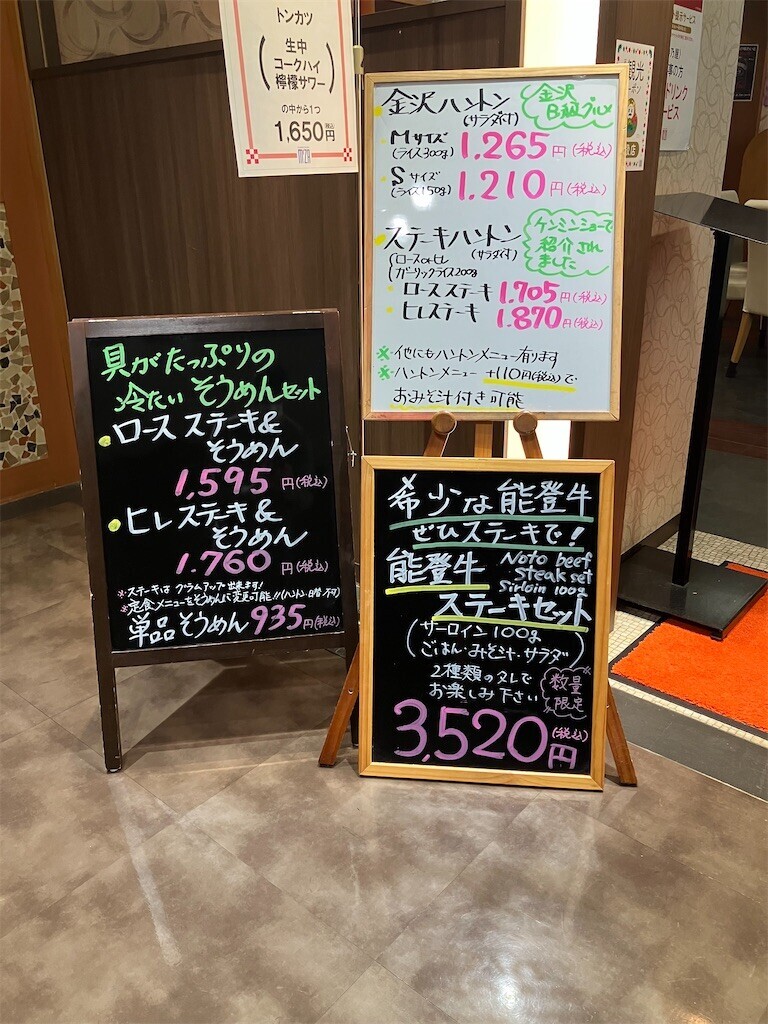 トンカツ
生中
コークハイ
檸檬サワー
の中から1つ
1,650円税込
観光
金沢ハントン
(サラダ付)
金沢
B級グルメ
Mサイズ
(ライス300g)
1,265円(税込)
Sサイズ
(ライス150g)
1,210円(税込)
ステーキハントン
(サラダ付)
ロースorヒレ
ガーリックライス200g
ケンミンショーで
紹介され
ました
ロースステーキ 1.705円(税込)
ヒレステーキ 1.870円(税込)
※他にもハントンメニュー有ります
※ハントンメニュー +110円(税込)で
おみそ汁付き可能
具がたっぷりの
冷たい そうめんセット
ロース ステーキ&
そうめん
1,595円(税込)
ヒレステーキ&
そうめん
1.760円(税込)
※ステーキは グラムアップ出来ます!
※定食メニューをそうめんに変更可能!!(ハントン・日替 不可)
単品そうめん 935円(税込)
希少な能登牛
ぜひステーキで!
能登牛
Noto beef
Steak set
Sirloin 100g
ステーキセット
(サーロイン100g
ごはん・みそ汁・サラダ)
2種類のタレで
お楽しみ下さい
数量
限定
3,520円(税込)